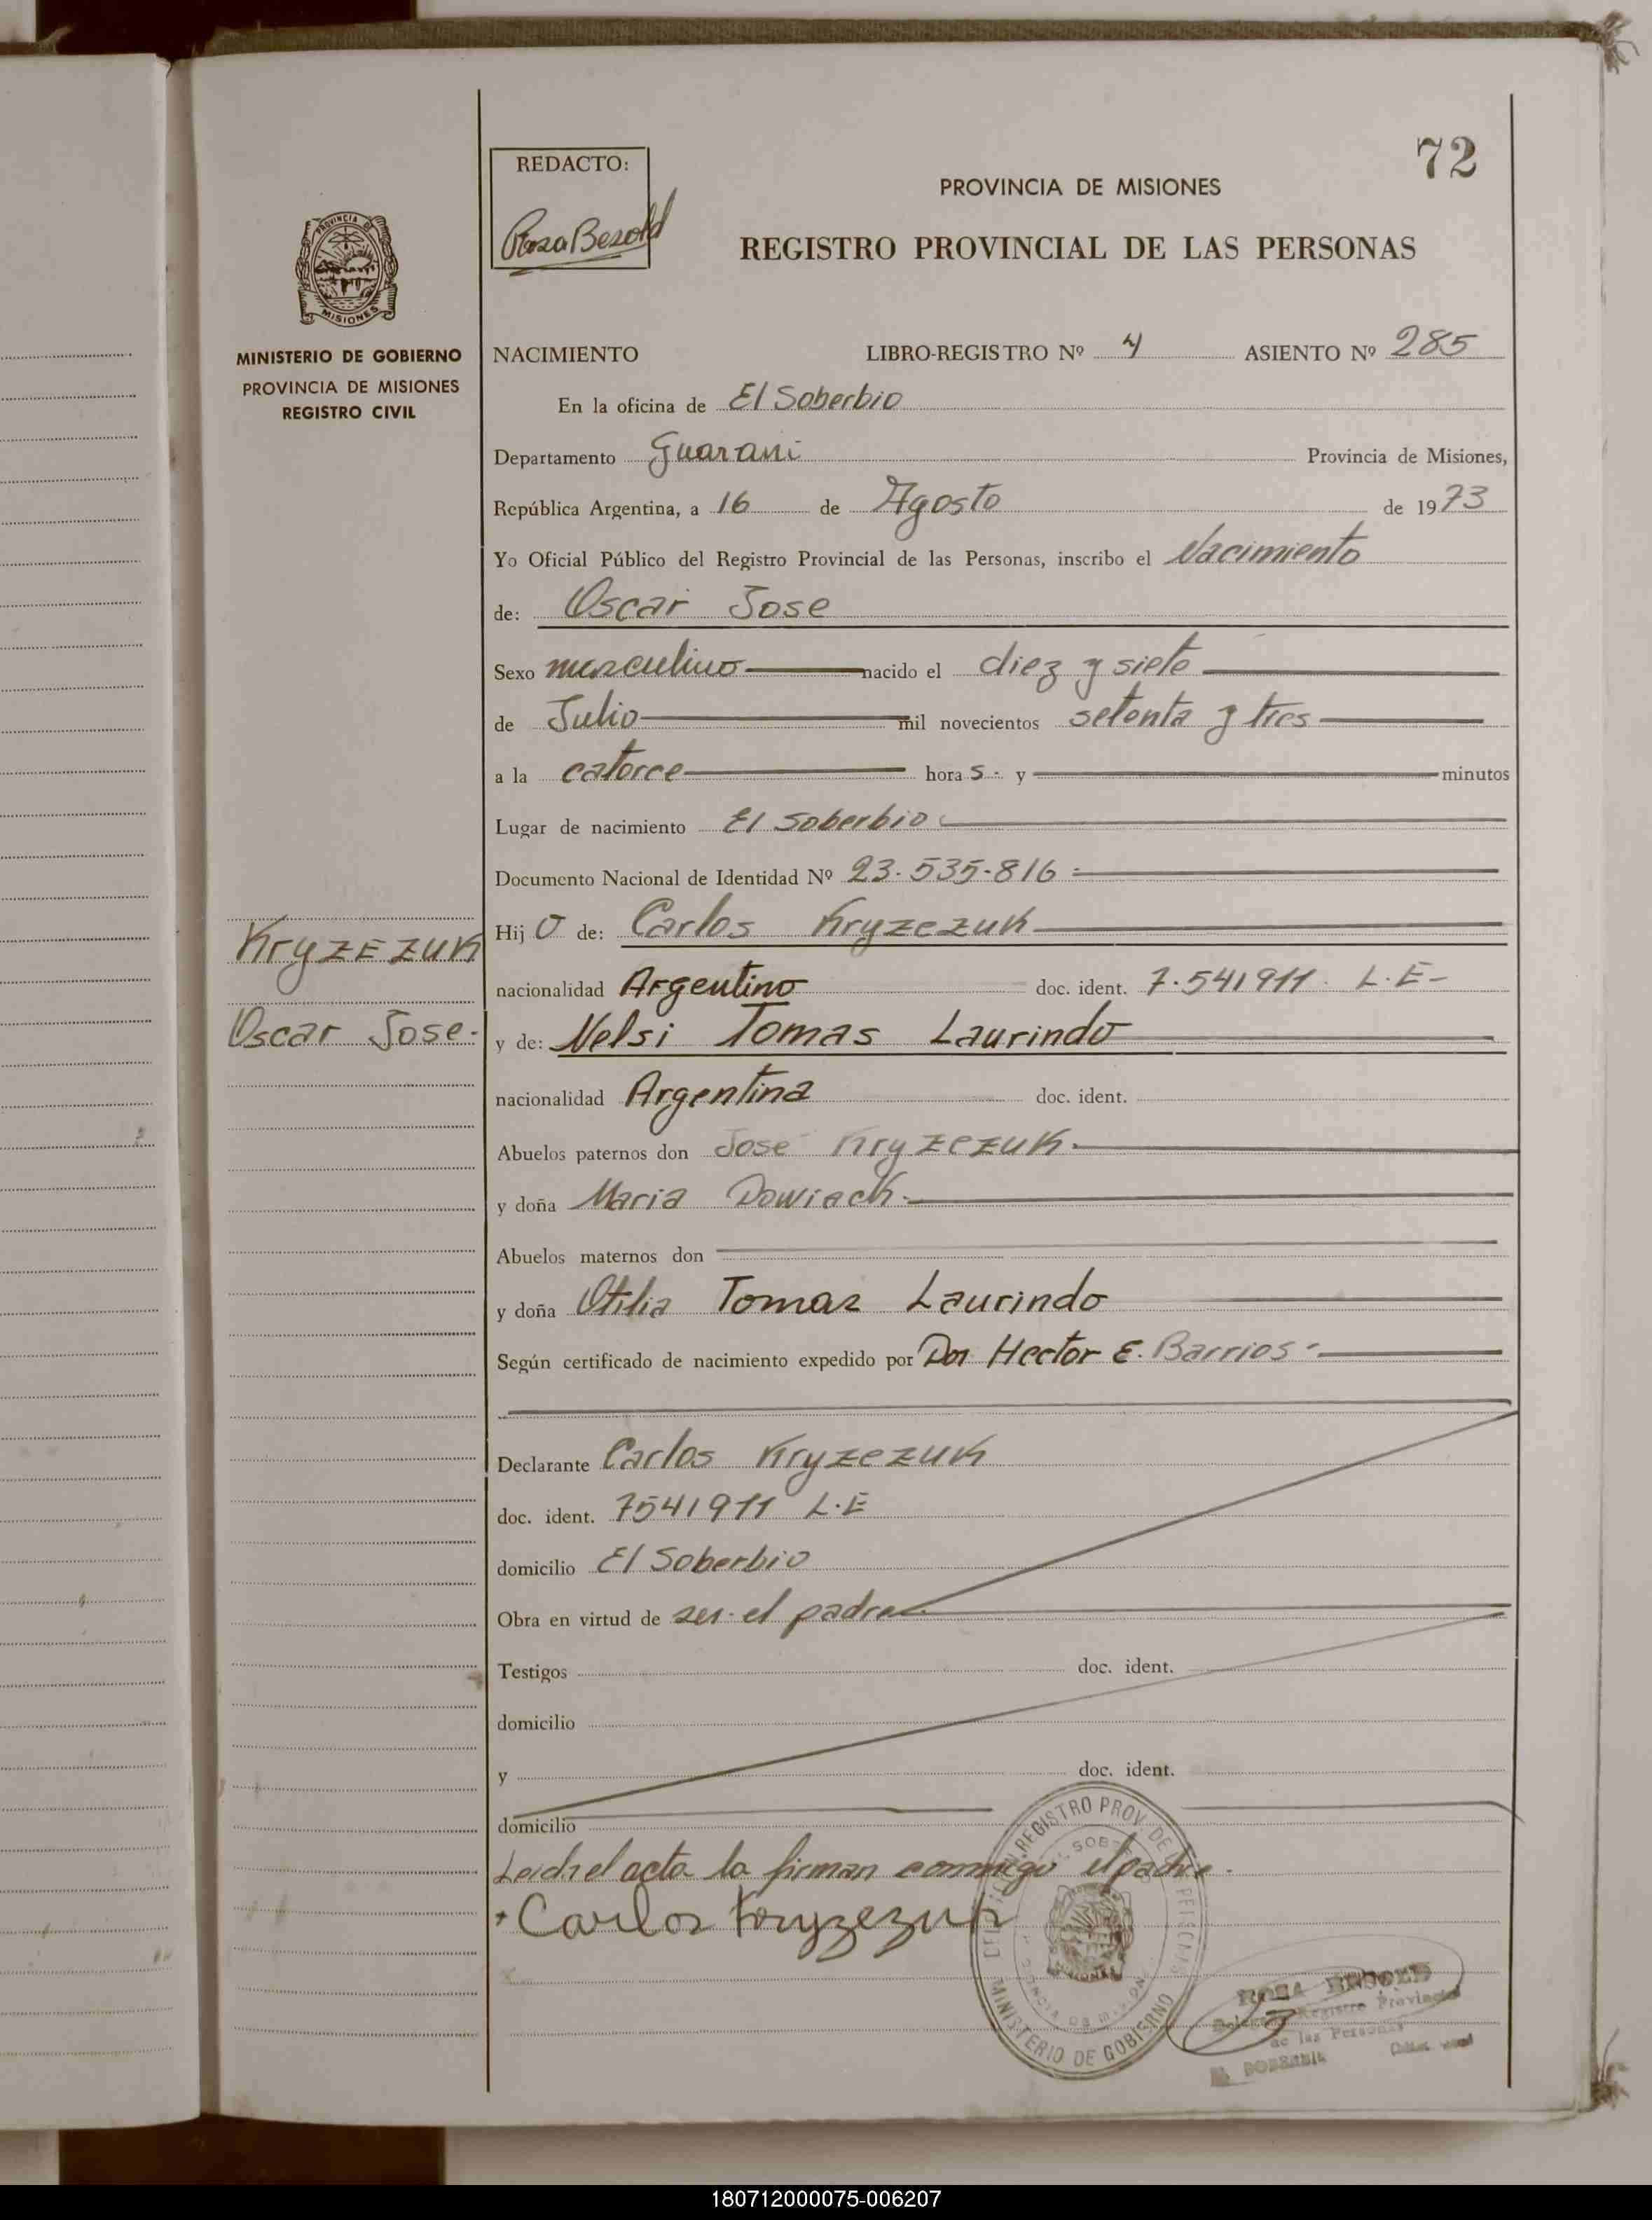 72
REDACTO:
Rosa Bezold
PROVINCIA DE MISIONES
REGISTRO PROVINCIAL DE LAS PERSONAS
PROVINCIA DE
MISIONES
MINISTERIO DE GOBIERNO
PROVINCIA DE MISIONES
REGISTRO CIVIL
NACIMIENTO LIBRO-REGISTRO Nº 4 ASIENTO Nº 285
En la oficina de El Soberbio
Departamento Guarani Provincia de Misiones,
República Argentina, a 16 de Agosto de 1973
Yo Oficial Público del Registro Provincial de las Personas, inscribo el Nacimiento
de: Oscar Jose
Sexo masculino nacido el diez y siete
de Julio mil novecientos setenta y tres
a la catorce hora s. y minutos
Lugar de nacimiento El Soberbio
Documento Nacional de Identidad Nº 23.535.816
Kryzezuk
Oscar Jose.
Hijo de: Carlos Kryzezuk
nacionalidad Argentino doc. ident. 7.541911. L.E-
y de: Nelsi Tomas Laurindo
nacionalidad Argentina doc. ident.
Abuelos paternos don Jose Kryzezuk.
y doña Maria Dowiack.
Abuelos maternos don
y doña Otilia Tomaz Laurindo
Según certificado de nacimiento expedido por Dor Hector E. Barrios
Declarante Carlos Kryzezuk
doc. ident. 7541911 L.E
domicilio El Soberbio
Obra en virtud de ser el padre
Testigos doc. ident.
domicilio
y doc. ident.
domicilio
Leida el acta la firman conmigo el padre.
Carlos Kryzezuk
REGISTRO PROV. DE
MINISTERIO DE GOBIERNO
MISIONES
ROSA BEZOLD
Registro Provincial
de las Personas
180712000075-006207